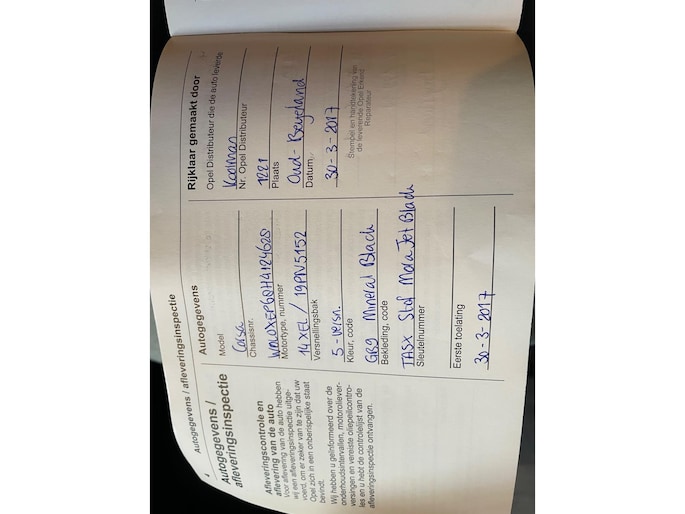 4
Autogegevens / afleveringsinspectie
Autogegevens /
afleveringsinspectie
Afleveringscontrole en
aflevering van de auto
Voor aflevering van de auto hebben
wij een afleveringsinspectie uitge-
voerd, om er zeker van te zijn dat uw
Opel zich in een onberispelijke staat
bevindt.
Wij hebben u geïnformeerd over de
onderhoudsintervallen, motoroliever-
versingen en vereiste oliepeilcontro-
les en u hebt de controlelijst van de
afleveringsinspectie ontvangen.
Autogegevens
Model
Corsa
Chassisnr.
Motortype, nummer
14XEL / 19PN5152
Versnellingsbak
5-versn.
Kleur, code
GB9 Mineral Black
Bekleding, code
TASX Stof Mora Jet Black
Sleutelnummer
Eerste toelating
30-3-2017
Rijklaar gemaakt door
Opel Distributeur die de auto leverde
Koolman
Nr. Opel Distributeur
1221
Plaats
Oud-Beijerland
Datum
30-3-2017
Stempel en handtekening van
de leverende Opel Erkend
Reparateur